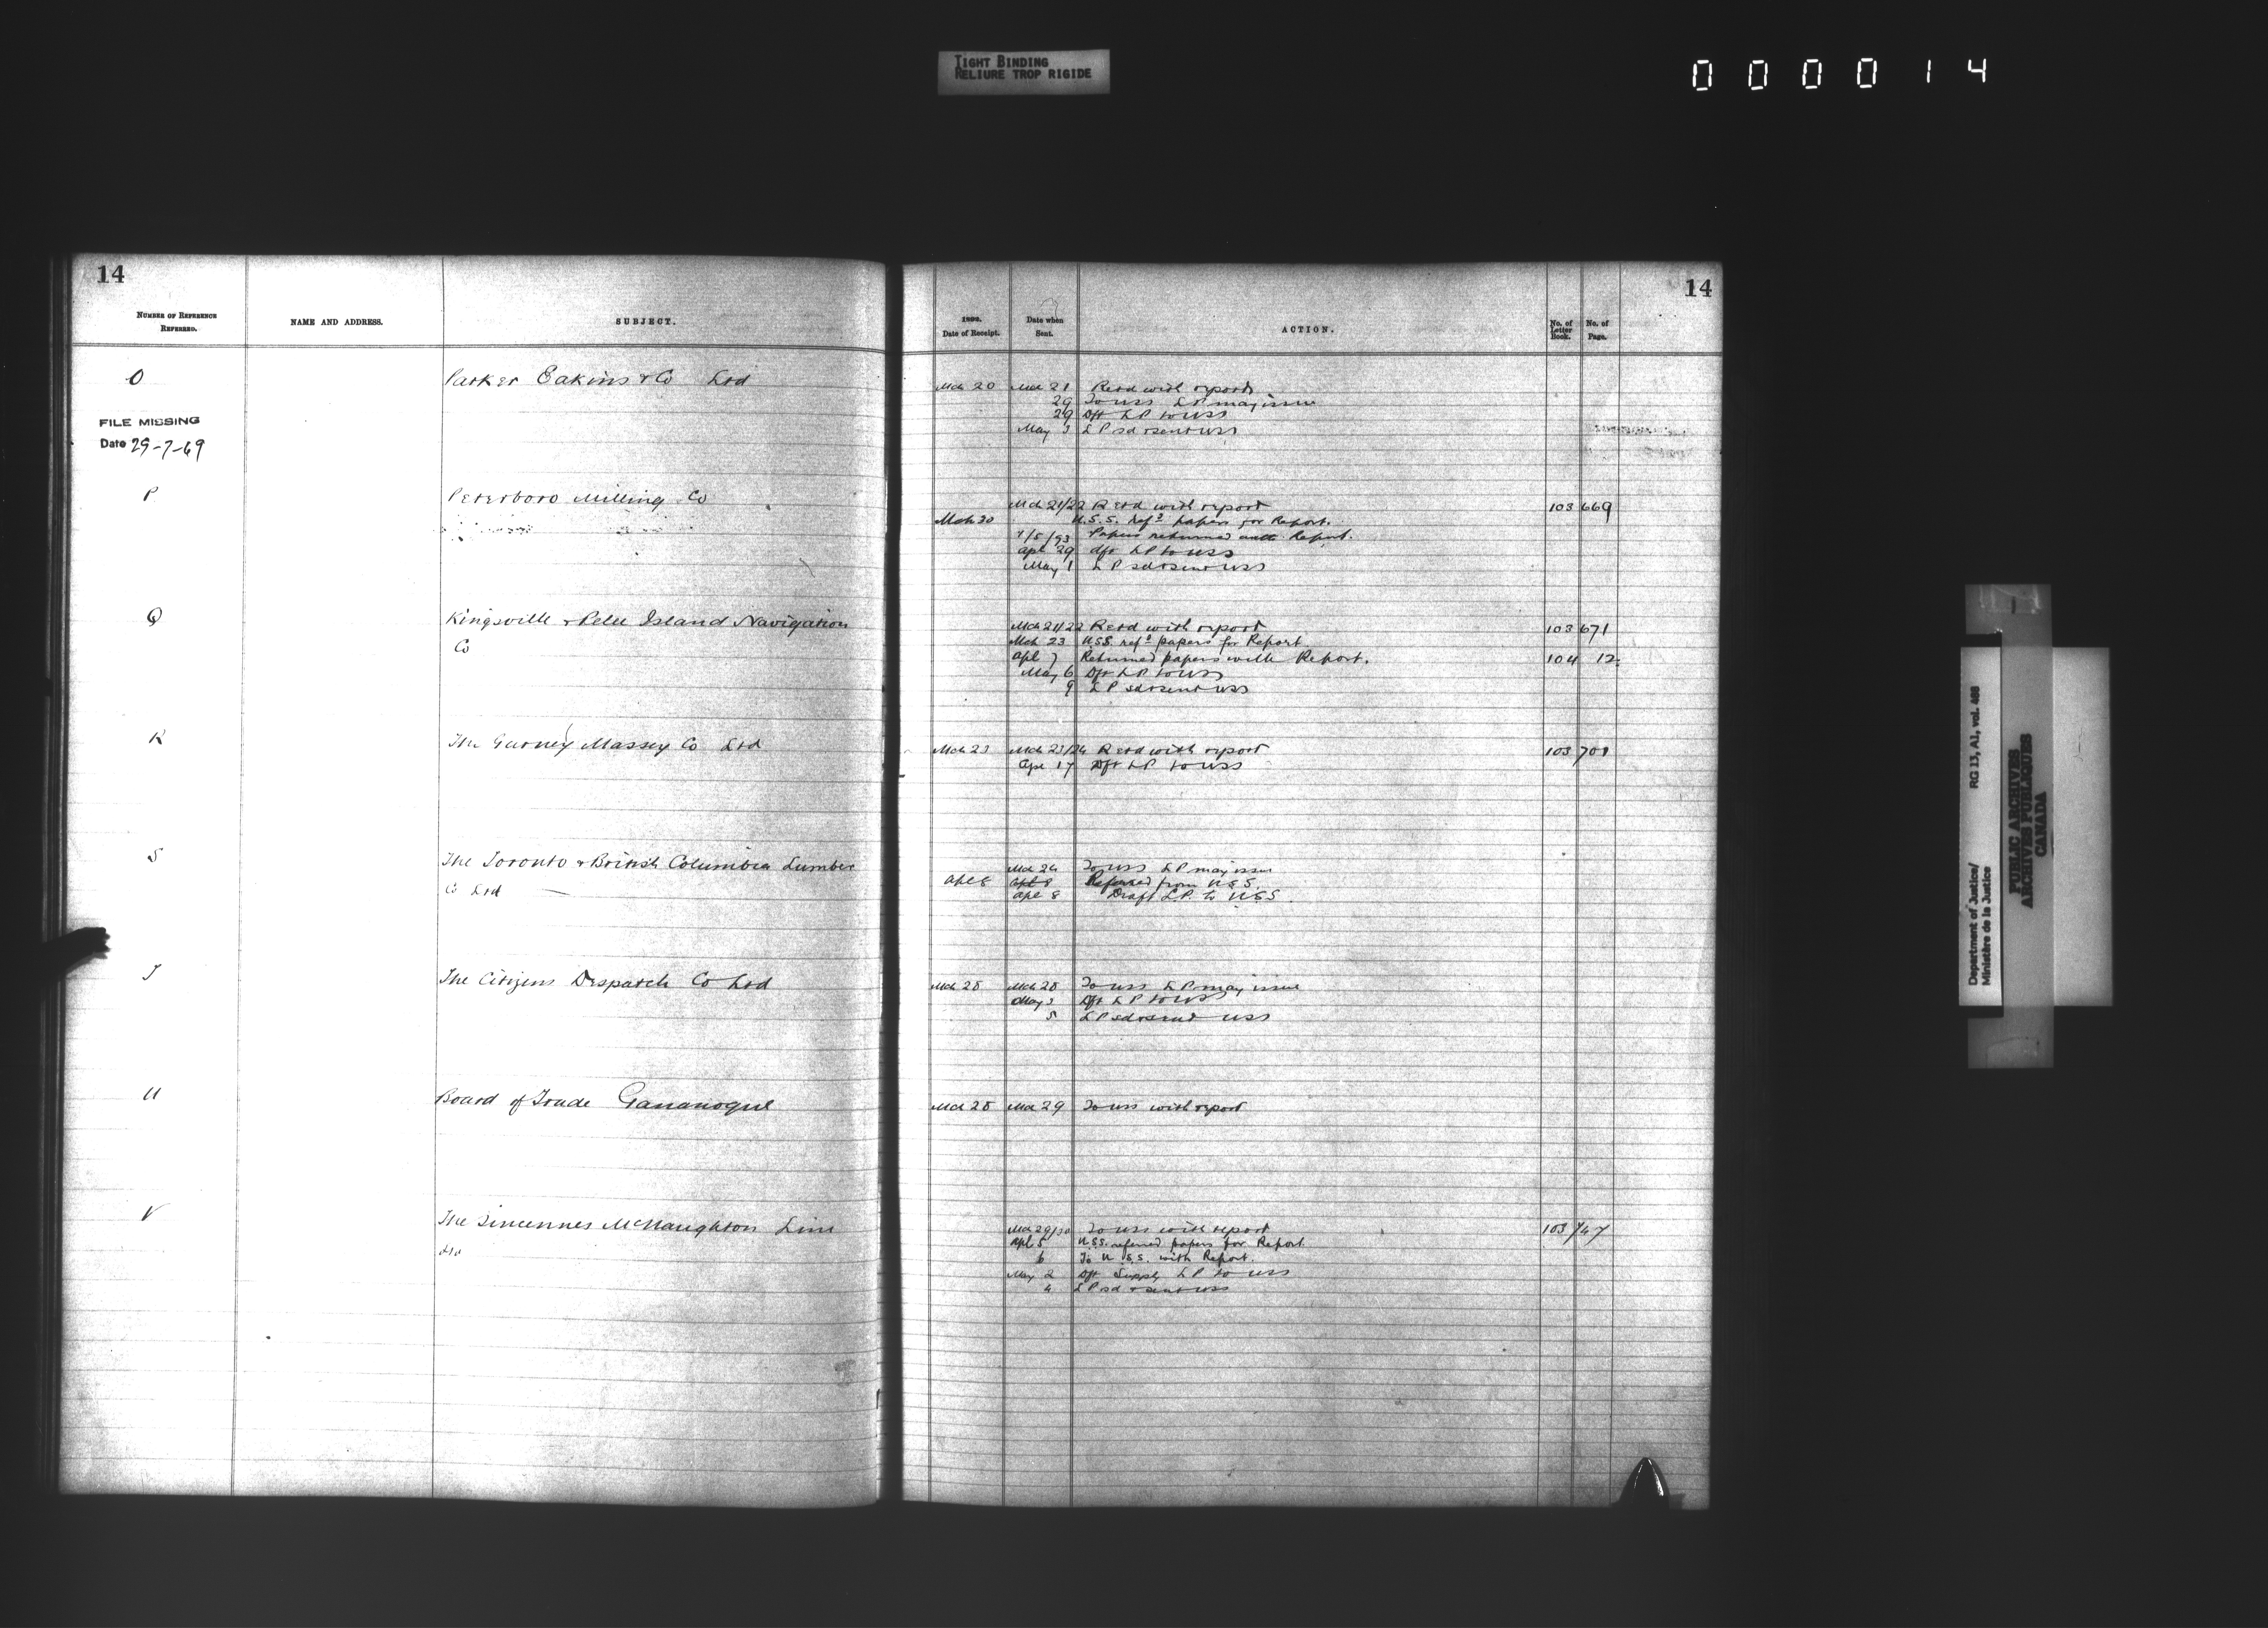 TIGHT BINDING
RELIURE TROP RIGIDE
000014
14
NUMBER OF REFERENCE
REFERRED.
NAME AND ADDRESS.
SUBJECT.
O
Parker Eakins & Co Ltd
FILE MISSING
Date 29-7-69
P
Peterboro Milling Co
Q
Kingsville & Pelee Island Navigation
Co
R
The Gurney Massey Co Ltd
S
The Toronto & British Columbia Lumber
Co Ltd
T
The Citizens Despatch Co Ltd
U
Board of Trade Gananoque
V
The Sincennes McNaughton Line
Ltd
14
Date of Receipt.
Date when
Sent.
ACTION.
No. of
Letter
Book.
No. of
Page.
Mch 20 Mch 21 Retd with report
29 To USS LP may issue
29 Dft LP to USS
May 3 LP sd & sent USS
Mch 21/22 Retd with report 103 669
Mch 30 U.S.S. refd papers for Report.
Papers returned with Report.
Apl 29 dft LP to USS
May 1 LP sd & sent USS
Mch 21/22 Retd with report 103 671
Mch 23 U.S.S. refd papers for Report
Apl 7 Returned papers with Report. 104 12
May 6 Dft LP to USS
9 LP sd & sent USS
Mch 23 Mch 23/24 Retd with report 103 701
Apl 17 Dft LP to USS
Mch 24 To USS LP may issue
Apl 8 Apl 8 Referred from U.S.S.
Apl 8 Draft L.P. to U.S.S.
Mch 28 Mch 28 To USS LP may issue
May 3 Dft LP to USS
5 LP sd & sent USS
Mch 28 Mch 29 To USS with report
Mch 29/30 To USS with report 103 747
Apl 5 U.S.S. referred papers for Report.
6 To U.S.S. with Report.
May 2 Dft Supply LP to USS
4 LP sd & sent USS
Department of Justice/ RG 13, A1, vol. 488
Ministère de la Justice
PUBLIC ARCHIVES
ARCHIVES PUBLIQUES
CANADA